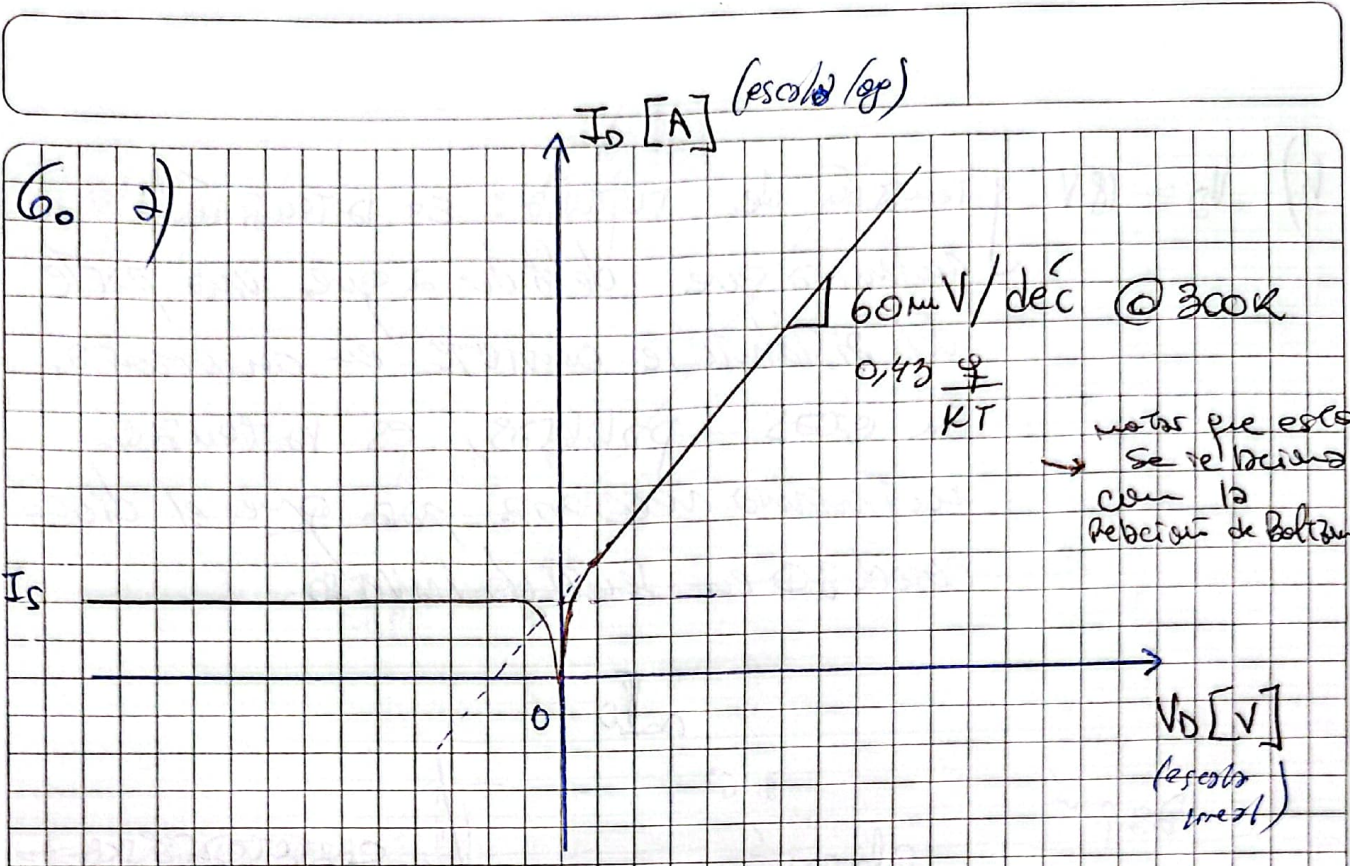 I_D [A] (escala log)
6. a)
60mV/déc @ 300K
0,43 q/KT
notar que esto
→ se relaciona
con la
Relación de Boltzm
I_S
0
V_D [V]
(escala
lineal)